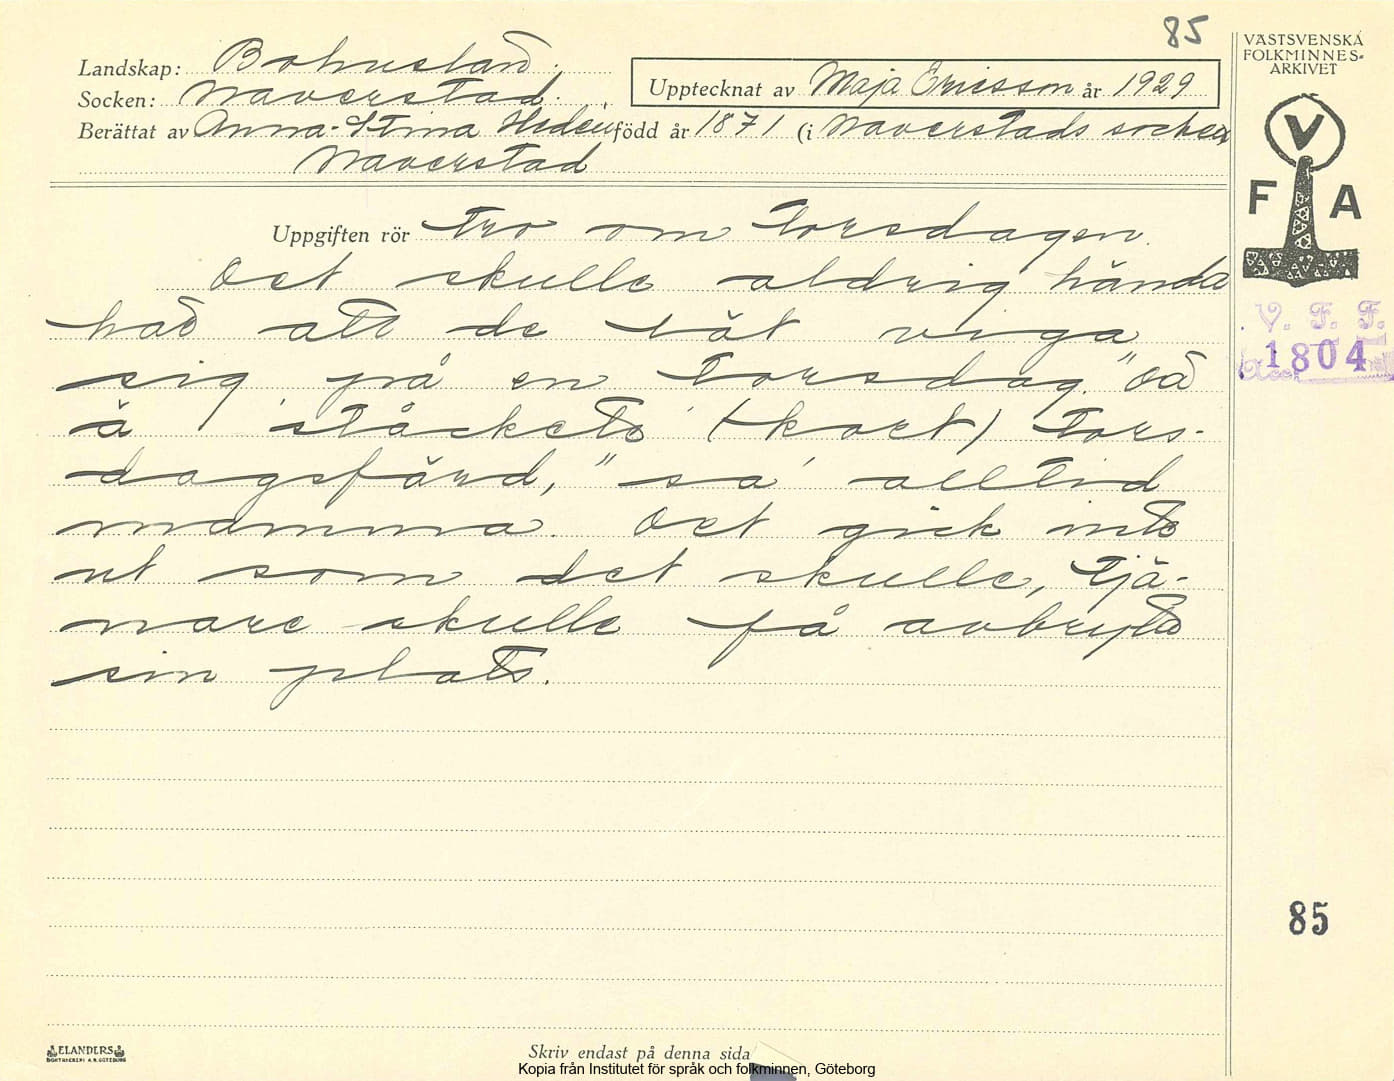 85
VÄSTSVENSKA
FOLKMINNES-
ARKIVET
Landskap: Bohuslän.
Socken: Naverstad.
Upptecknat av Maja Ericsson år 1929
Berättat av Anna-Stina Hedén född år 1871 (i Naverstads socken,
Naverstad
V
F A
Uppgiften rör Tro om Torsdagen.
Det skulle aldrig hända
här att de lät viga
sig på en Torsdag. "Dä
ä stäckete (kort) Tors-
dagsfärd," sa' alltid
mamma. Det gick inte
ut som det skulle, Tjä-
nare skulle få avbryta
sin plats.
V. F. F.
Acc. 1804
85
ELANDERS
BOKTRYCKERI A.B. GÖTEBORG
Skriv endast på denna sida
Kopia från Institutet för språk och folkminnen, Göteborg